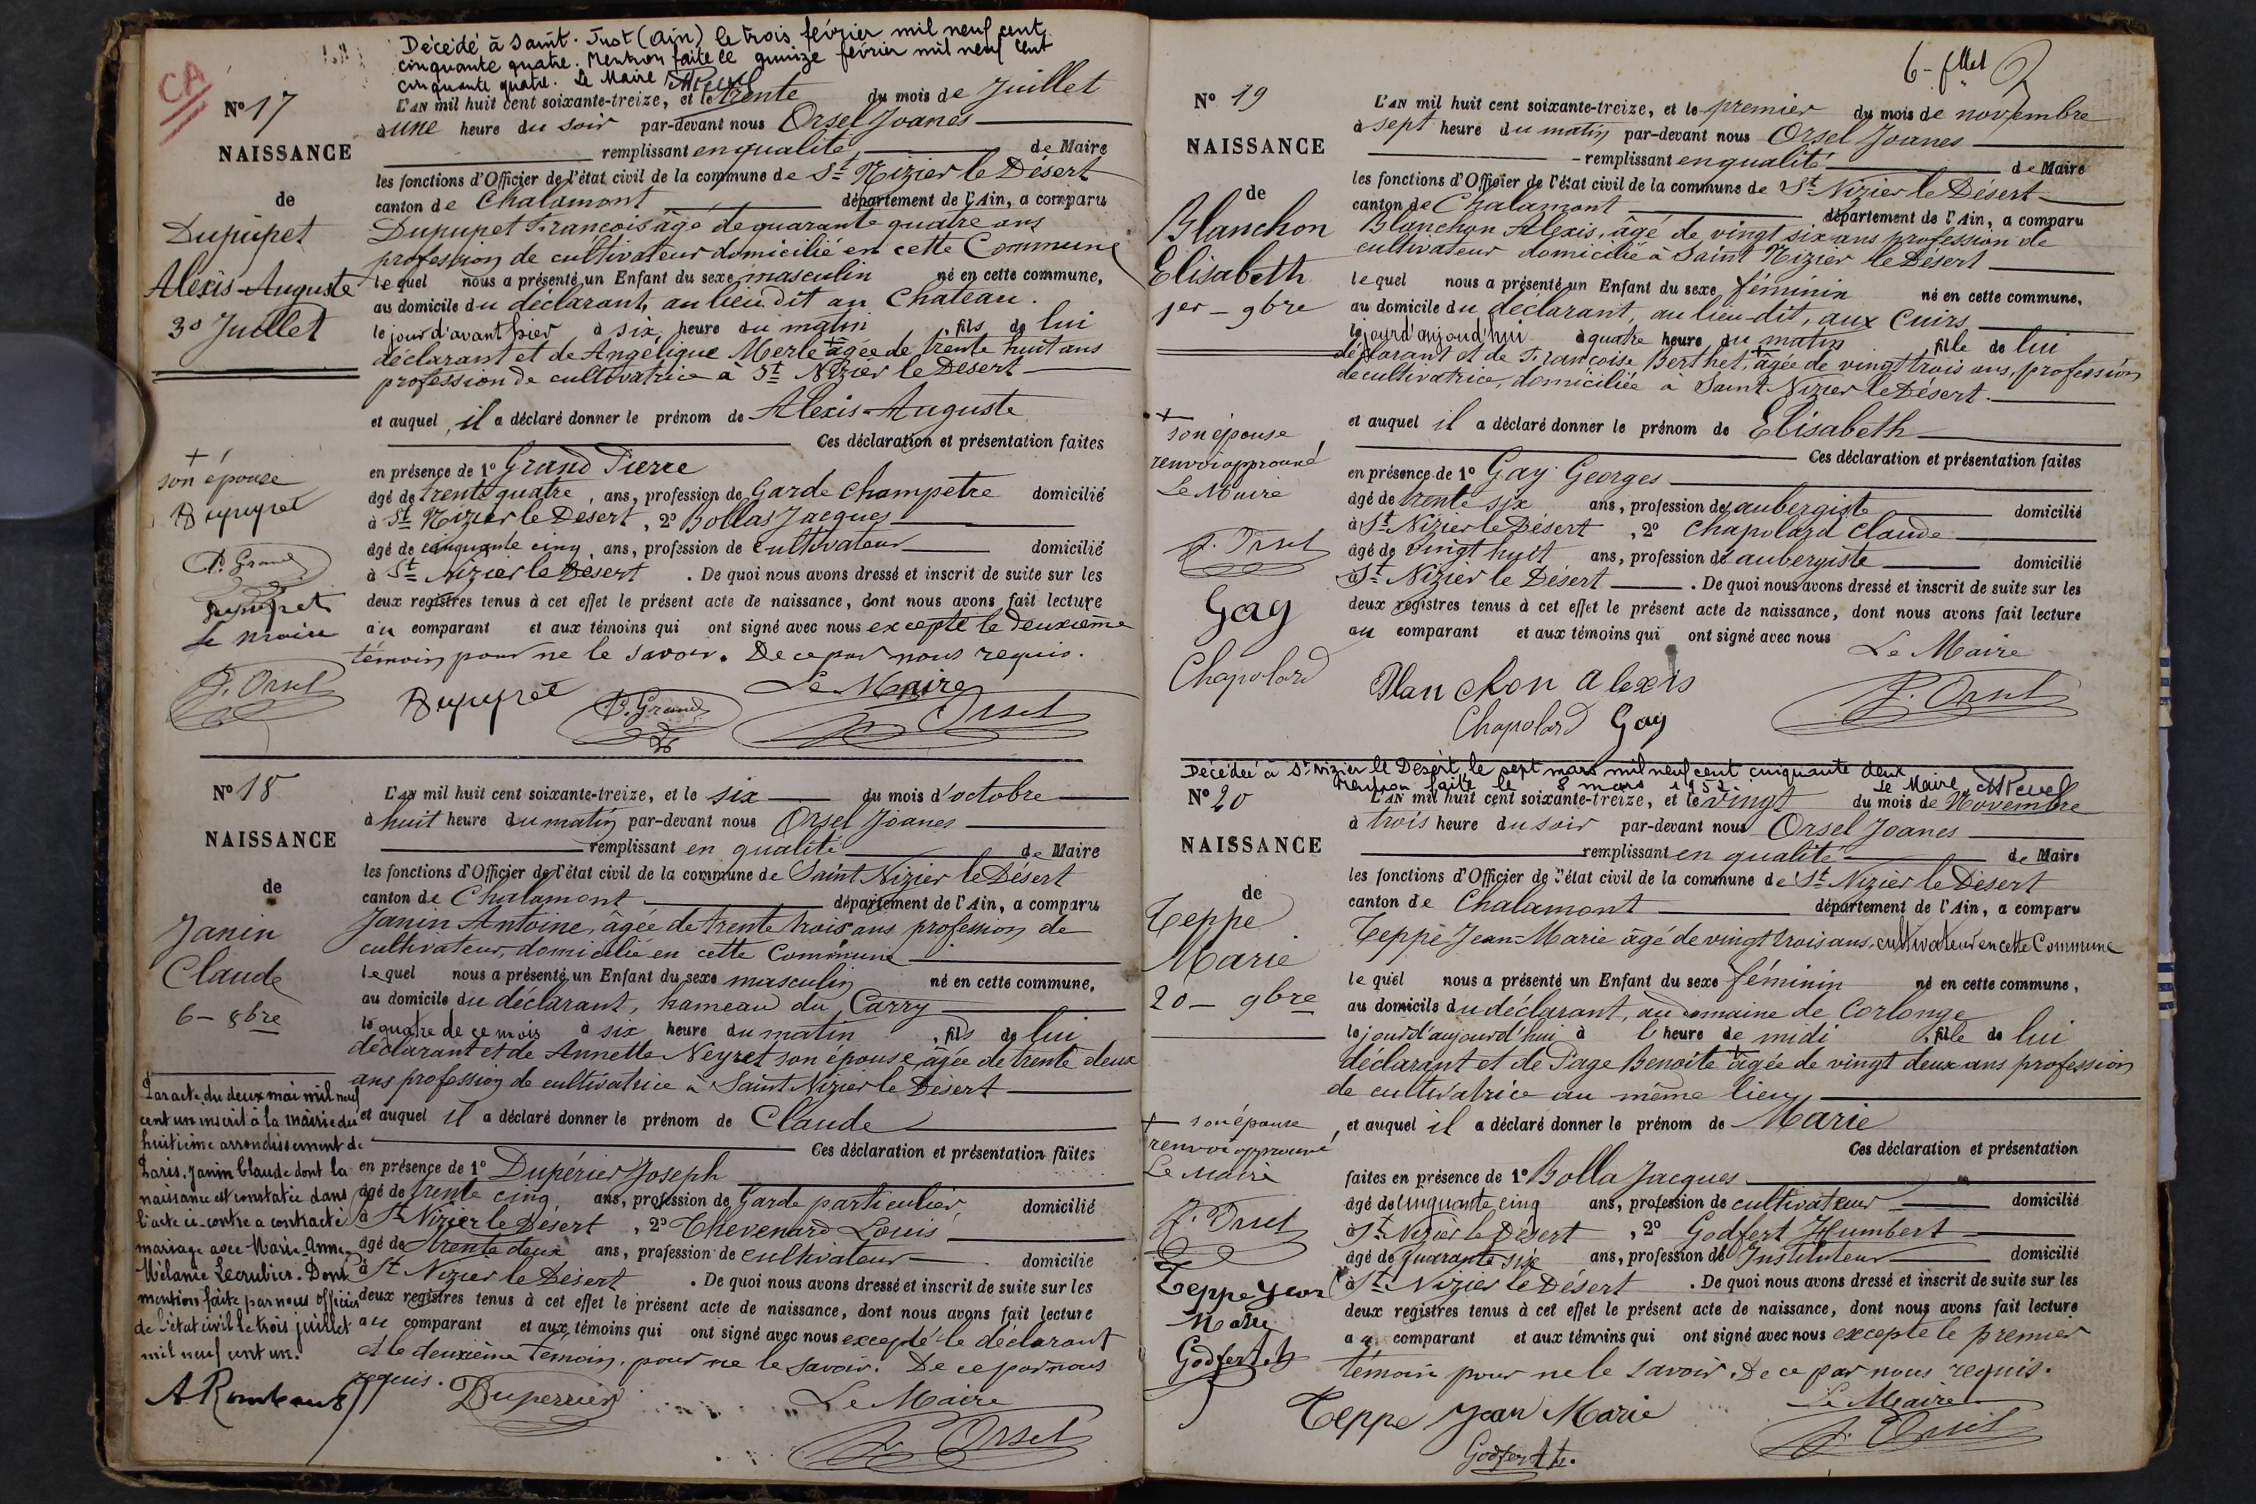 CA
Décédé à Saint-Just (Ain) le trois février mil neuf cent
cinquante quatre. Mention faite le quinze février mil neuf cent
cinquante quatre. Le Maire
N° 17
NAISSANCE
de
Dupupet
Alexis-Auguste
30 Juillet
L'AN mil huit cent soixante-treize, et le trente du mois de Juillet
à une heure du soir par-devant nous Orsel Joanes
remplissant en qualité de Maire
les fonctions d'Officier de l'état civil de la commune de St Nizier le Désert
canton de Chalamont département de l'Ain, a comparu
Dupupet François âgé de quarante quatre ans
profession de cultivateur domicilié en cette Commune
lequel nous a présenté un Enfant du sexe masculin né en cette commune,
au domicile du déclarant, au lieu dit au Chateau.
le jour d'avant hier à six heure du matin, fils de lui
déclarant et de Angélique Merle + âgée de trente huit ans
profession de cultivatrice à St Nizier le Désert
et auquel il a déclaré donner le prénom de Alexis-Auguste
Ces déclaration et présentation faites
en présence de 1° Grand Pierre
âgé de trente quatre, ans, profession de Garde champetre domicilié
à St Nizier le Desert, 2° Bollas Jacques
âgé de cinquante cinq, ans, profession de cultivateur domicilié
à St Nizier le Desert. De quoi nous avons dressé et inscrit de suite sur les
deux registres tenus à cet effet le présent acte de naissance, dont nous avons fait lecture
au comparant et aux témoins qui ont signé avec nous excepté le deuxième
témoin pour ne le savoir. De ce par nous requis.
+
son épouse
Dupupet
P. Grand
Le maire
J. Orsel
Dupupet P. Grand Le Maire
J. Orsel
N° 18
NAISSANCE
de
Janin
Claude
6 - 8bre
L'AN mil huit cent soixante-treize, et le six du mois d'octobre
à huit heure du matin par-devant nous Orsel Joanes
remplissant en qualité de Maire
les fonctions d'Officier de l'état civil de la commune de Saint Nizier le Désert
canton de Chalamont département de l'Ain, a comparu
Janin Antoine, âgée de trente trois ans profession de
cultivateur, domicilié en cette Commune
lequel nous a présenté un Enfant du sexe masculin né en cette commune,
au domicile du déclarant, hameau du Carry
le quatre de ce mois à six heure du matin, fils de lui
déclarant et de Annette Neyret son épouse âgée de trente deux
ans profession de cultivatrice à Saint Nizier le Désert
et auquel il a déclaré donner le prénom de Claude
Ces déclaration et présentation faites
en présence de 1° Dupérier Joseph
âgé de trente cinq ans, profession de Garde particulier domicilié
à St Nizier le Désert, 2° Thevenard Louis
âgé de trente deux ans, profession de cultivateur domicilié
à St Nizier le Désert. De quoi nous avons dressé et inscrit de suite sur les
deux registres tenus à cet effet le présent acte de naissance, dont nous avons fait lecture
au comparant et aux témoins qui ont signé avec nous excepté le déclarant
et le deuxième témoin, pour ne le savoir. De ce par nous
requis.
Duperrier Le Maire
J. Orsel
Par acte du deux mai mil neuf
cent un inscrit à la mairie du
huitième arrondissement de
Paris, Janin Claude dont la
naissance est constatée dans
l'acte ci-contre a contracté
mariage avec Marie-Anne
Mélanie Lecrubier. Dont
mention faite par nous officier
de l'état civil le trois juillet
mil neuf cent un.
6 - fllet
N° 19
NAISSANCE
de
Blanchon
Elisabeth
1er - 9bre
L'AN mil huit cent soixante-treize, et le premier du mois de novembre
à sept heure du matin par-devant nous Orsel Joanes
remplissant en qualité de Maire
les fonctions d'Officier de l'état civil de la commune de St Nizier le Désert
canton de Chalamont département de l'Ain, a comparu
Blanchon Alexis, âgé de vingt six ans profession de
cultivateur domicilié à Saint Nizier le Désert
lequel nous a présenté un Enfant du sexe féminin né en cette commune,
au domicile du déclarant, au lieu-dit, aux Cuirs
le jourd'aujourd'hui à quatre heure du matin, fille de lui
déclarant et de Francoise Berthet, + âgée de vingt trois ans, profession
de cultivatrice, domiciliée a Saint Nizier le Désert.
et auquel il a déclaré donner le prénom de Elisabeth
Ces déclaration et présentation faites
en présence de 1° Gay Georges
âgé de trente six ans, profession de aubergiste domicilié
à St Nizier le Désert, 2° Chapolard Claude
âgé de vingt huit ans, profession de aubergiste domicilié
à St Nizier le Désert. De quoi nous avons dressé et inscrit de suite sur les
deux registres tenus à cet effet le présent acte de naissance, dont nous avons fait lecture
au comparant et aux témoins qui ont signé avec nous
Le Maire
+
son épouse
renvoi approuvé
Le Maire
J. Orsel
Gay
Chapolard
Blanchon Alexis
J. Orsel
Chapolard Gay
Décédée à St Nizier le Désert, le sept mars mil neuf cent cinquante deux
Mention faite le 8 mars 1952. Le Maire
N° 20
NAISSANCE
de
Teppe
Marie
20 - 9bre
L'AN mil huit cent soixante-treize, et le vingt du mois de Novembre
à trois heure du soir par-devant nous Orsel Joanes
remplissant en qualité de Maire
les fonctions d'Officier de l'état civil de la commune de St Nizier le Désert
canton de Chalamont département de l'Ain, a comparu
Teppe Jean-Marie âgé de vingt trois ans, cultivateur en cette Commune
lequel nous a présenté un Enfant du sexe féminin né en cette commune,
au domicile du déclarant, au domaine de Corlonge
le jourd'aujourd'hui à l heure de midi, fille de lui
déclarant et de Page Benoîte + âgée de vingt deux ans profession
de cultivatrice au même lieu
et auquel il a déclaré donner le prénom de Marie
Ces déclaration et présentation
faites en présence de 1° Bolla Jacques
âgé de cinquante cinq ans, profession de cultivateur domicilié
à St Nizier le Désert, 2° Godfert Humbert
âgé de quarante six ans, profession de Instituteur domicilié
à St Nizier le Désert. De quoi nous avons dressé et inscrit de suite sur les
deux registres tenus à cet effet le présent acte de naissance, dont nous avons fait lecture
au comparant et aux témoins qui ont signé avec nous excepté le premier
témoin pour ne le savoir. De ce par nous requis.
+ son épouse
renvoi approuvé
Le Maire
J. Orsel
Teppe Jean
Marie
Godfert h
Teppe Jean Marie Le Maire
J. Orsel
Godfert h.